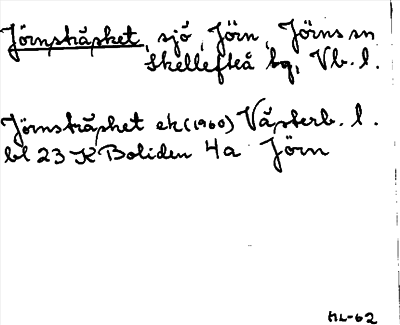 Jörnsträsket, sjö, Jörn, Jörns sn
Skellefteå bg, Vb. l.
Jörnsträsket ek (1960) Västerb. l.
bl 23 K Boliden 4a Jörn
ML-62